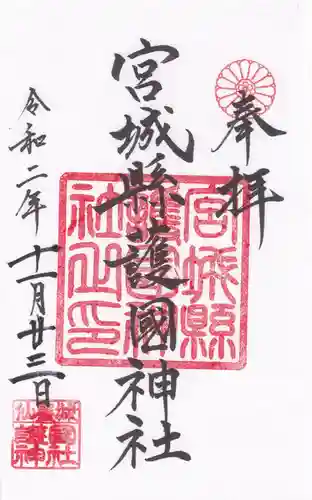 奉拝
宮城縣護國神社
令和二年十一月廿三日
宮城縣護國神社之印